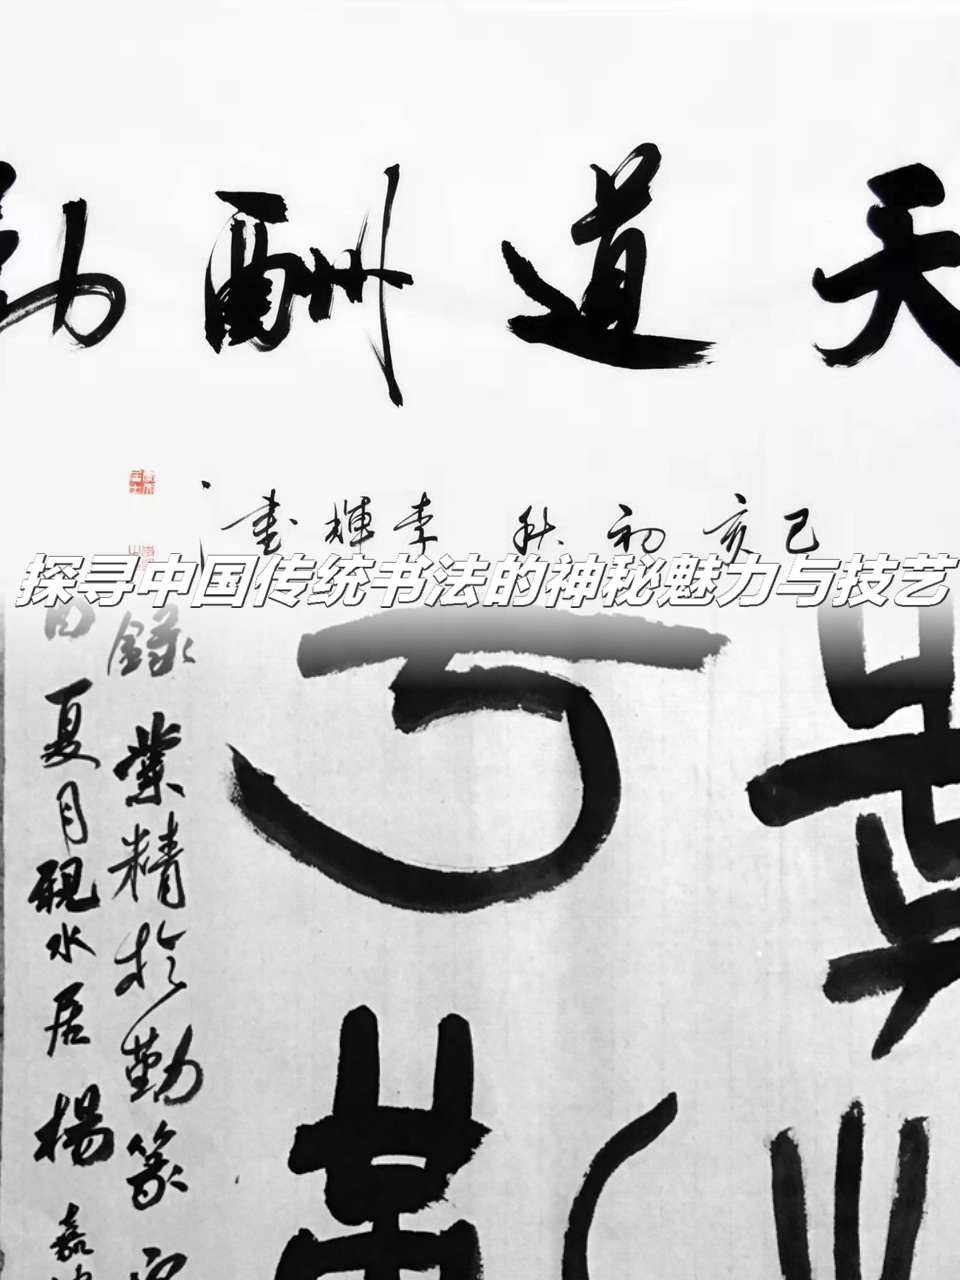 天道酬勤
己亥初秋李輝書
探寻中国传统书法的神秘魅力与技艺
業
于勤
錄業精於勤篆
夏月硯水居楊嘉